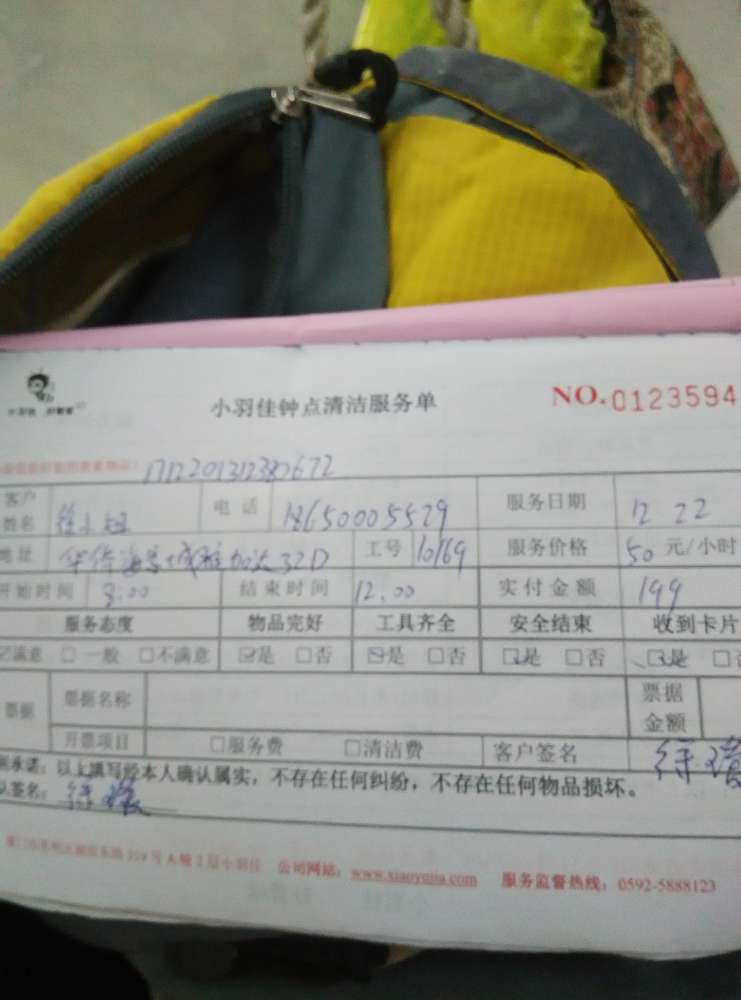 小羽佳钟点清洁服务单
NO.0123594
171220131238
客户姓名 电话 18650005529 服务日期 12 22
地址 32D 工号 10169 服务价格 50元/小时
开始时间 8:00 结束时间 12.00 实付金额 199
服务态度 物品完好 工具齐全 安全结束 收到卡片
满意 一般 不满意 是 否 是 否 是 否 是
票据 票据名称 票据金额
开票项目 服务费 清洁费 客户签名
承诺：以上填写经本人确认属实，不存在任何纠纷，不存在任何物品损坏。
签名：
公司网站：www.xiaoyujia.com 服务监督热线：0592-5888123